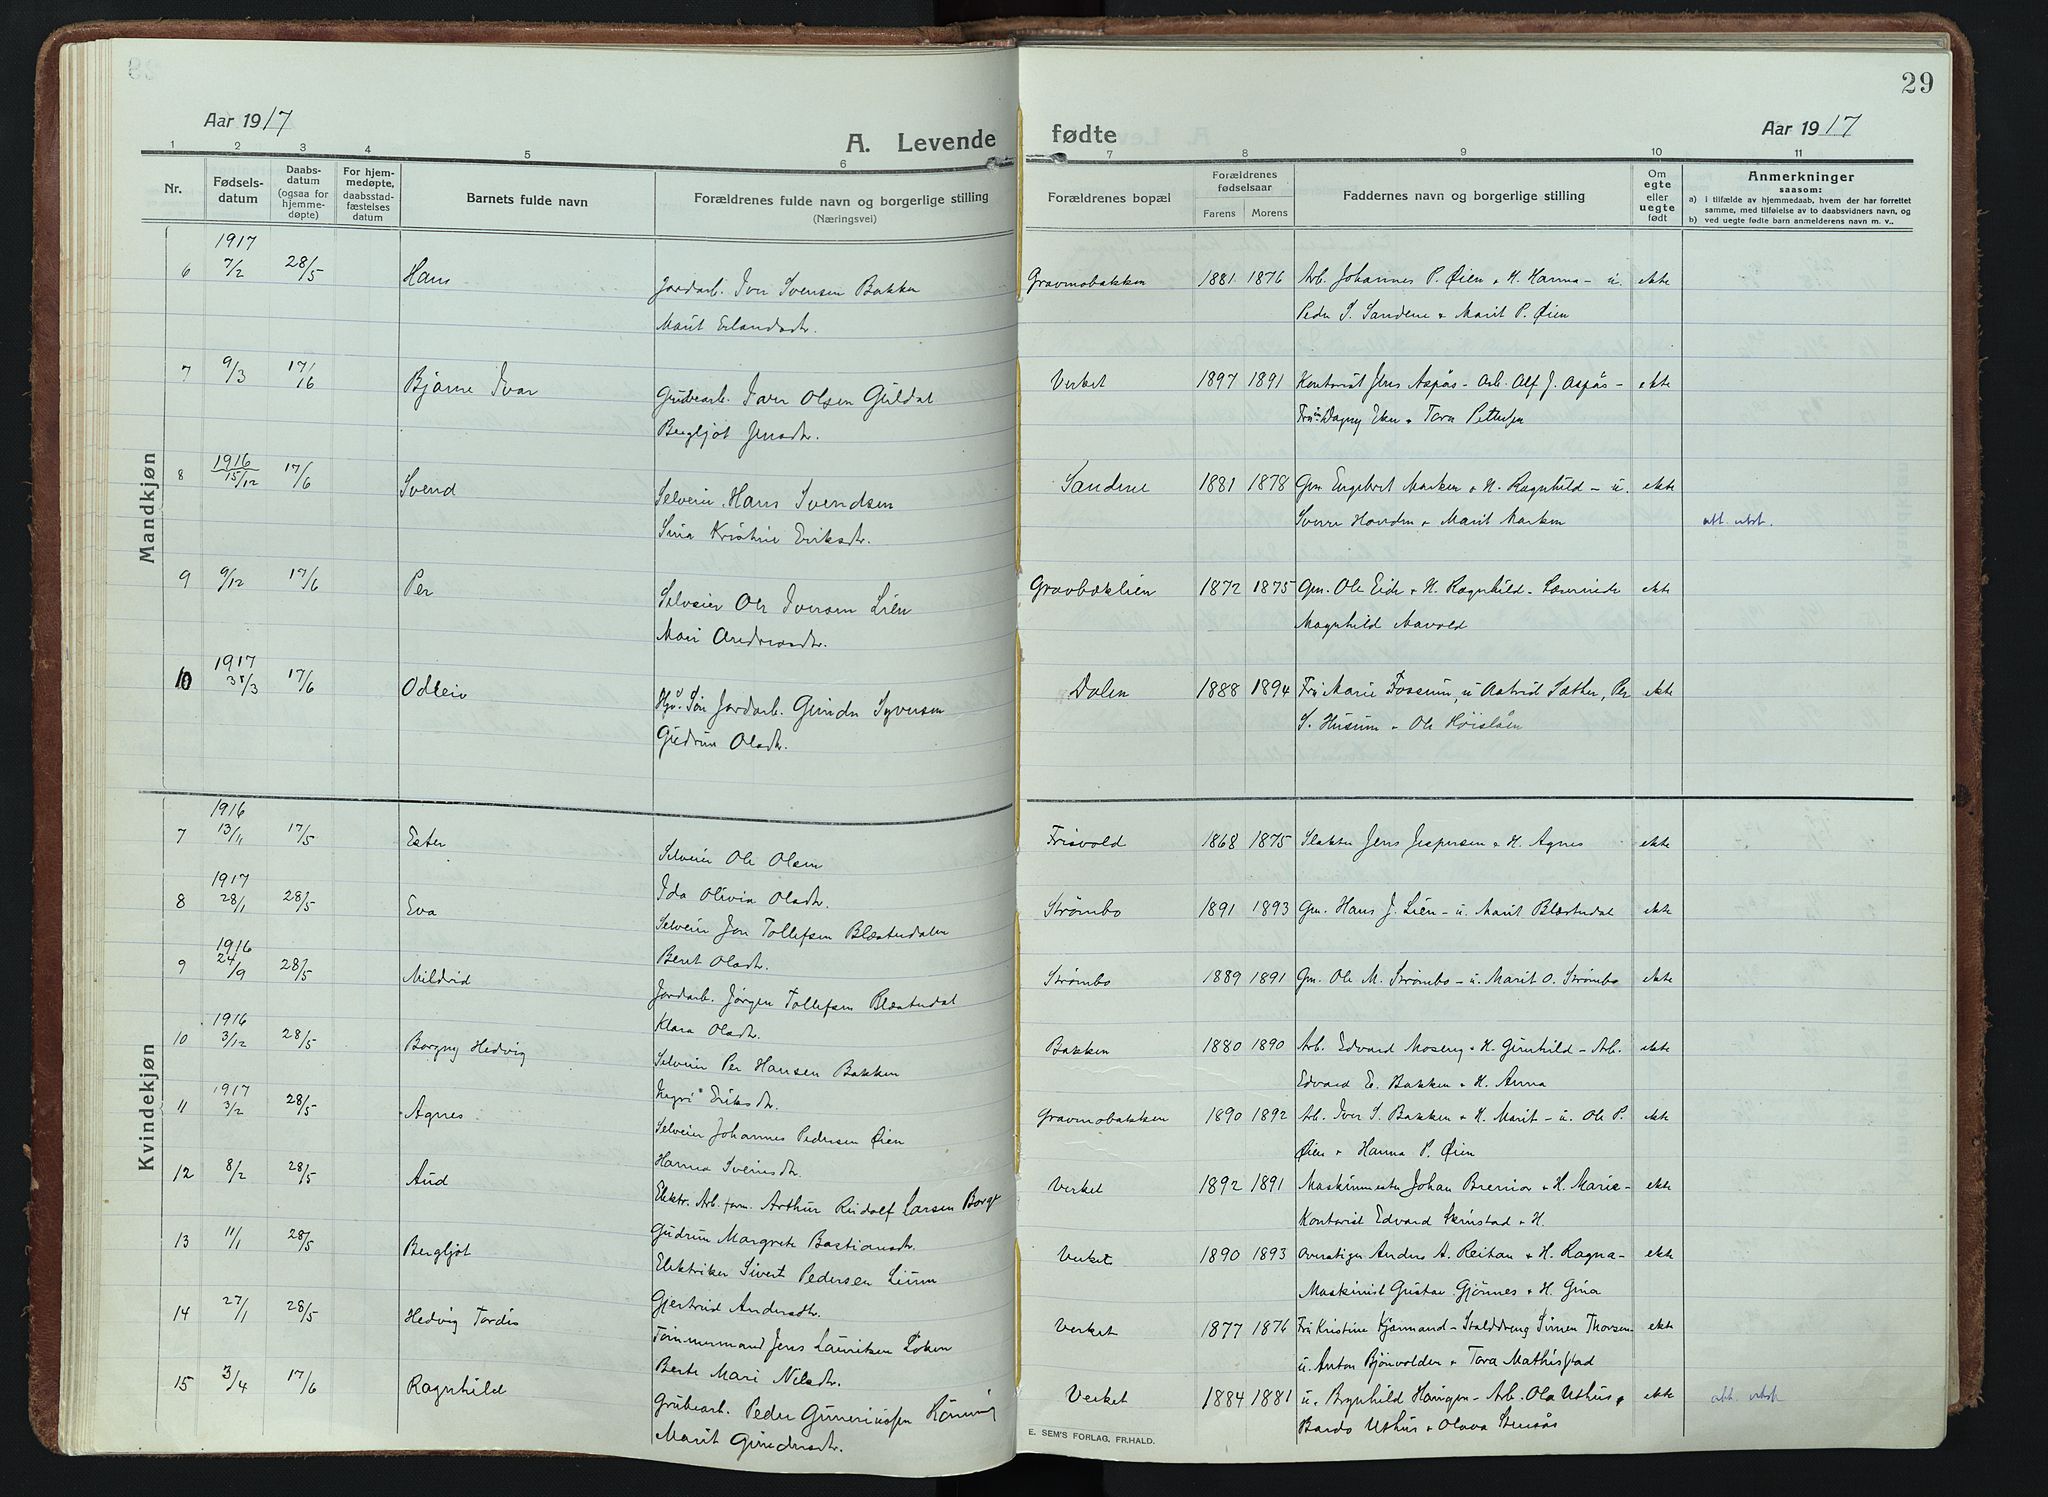 29
Aar 1917
A. Levende fødte
Aar 1917
1 2 3 4 5 6 7 8 9 10 11
Nr.
Fødsels-
datum
Daabs-
datum
(ogsaa for
hjemme-
døpte)
For hjem-
medøpte,
daabsstad-
fæstelses
datum
Barnets fulde navn
Forældrenes fulde navn og borgerlige stilling
(Næringsvei)
Forældrenes bopæl
Forældrenes
fødselsaar
Farens Morens
Faddernes navn og borgerlige stilling
Om
egte
eller
uegte
født
Anmerkninger
saasom:
a) i tilfælde av hjemmedaab, hvem der har forrettet
samme, med tilføielse av to daabsvidners navn, og
b) ved uegte fødte barn anmelderens navn m. v..
Mandkjøn
1917
6 7/2 28/5 Hans Jordarb. Iver Svensen Bakken Gravmobakken 1881 1876 Arb. Johannes P. Øien + H. Hanna – u. ekte
Marit Erlandsdtr. Peder S. Sandene + Marit P. Øien
7 9/3 17/16 Bjarne Ivar Grubearb. Iver Olsen Guldal Verket 1897 1891 Kontorist Jens Aspås – Arb. Alf J. Aspås – ekte
Bergljot Jensdtr. Fru Dagny Eken + Tora Pettersen
1916
8 15/12 17/6 Svend Selveier Hans Svendsen Sandene 1881 1878 Gm. Engebret Marken + H. Ragnhild – u. ekte
Sina Kristine Eriksdtr. Sverre Honden + Marit Marken att. utst.
9 9/12 17/6 Per Selveier Ole Iversen Lien Gravbæklien 1872 1875 Gm. Ole Eide + H. Ragnhild – Lærerinde ekte
Mari Andreasdtr. Magnhild Aavold
1917
10 31/3 17/6 Odleiv Jordarb. Gunder Syversen Dalen 1888 1894 Fru Marie Fossum, u Aastrid Sæther, Per ekte
Gudrun Olasdtr. S. Husum + Ole Høislåen
Kvindekjøn
1916
7 13/11 17/5 Ester Selveier Ole Olsen Frisvold 1868 1875 Slakter Jens Jespersen + H. Agnes ekte
Ida Olivia Olasdtr.
1917
8 28/1 28/5 Eva Selveier Jon Tollefsen Blæsterdalen Strømbo 1891 1893 Gm. Hans J. Lien – u. Marit Blæsterdal ekte
Beret Olasdtr.
1916
9 24/9 28/5 Mildrid Jordarb. Jørgen Tollefsen Blæsterdal Strømbo 1889 1891 Gm. Ole M. Strømbo – u. Marit O. Strømbo ekte
Klara Olasdtr.
1916
10 3/12 28/5 Borgny Hedvig Selveier Per Hansen Bakken Bakken 1880 1890 Arb. Edvard Moseng + H. Gunhild – Arb. ekte
Ingri Eriksdtr. Edvard E. Bakken + H. Anna
1917
11 3/2 28/5 Agnes Selveier Johannes Pedersen Øien Gravmobakken 1890 1892 Arb. Iver S. Bakken + H. Marit – u. Ole P. ekte
Hanna Svensdtr. Øien + Hanna P. Øien
12 8/2 28/5 Aud Elektr. Arb. form. Arthur Rudolf Larsen Borge Verket 1892 1891 Maskinmester Johan Brenior + H. Marie – ekte
Gudrun Margrete Bastiansdtr. Kontorist Edvard Skinstad + H.
13 11/1 28/5 Bergljot Elektriker Sivert Pedersen Lium Verket 1890 1893 Overstiger Anders A. Reitan + H. Ragna – ekte
Gjertrud Andersdtr. Maskinist Gustav Gjønnes + H. Gina
14 27/1 28/5 Hedvig Tordis Tømmermand Jens Lauritsen Løken Verket 1877 1876 Fru Kristine Kjørmand – Stalddreng Simen Thorsen ekte
Berte Mari Nilsdtr. u. Anton Bjønvolden + Tora Mathisstad
15 3/4 17/6 Ragnhild Grubearb. Peder Guneriussen Rønning Verket 1884 1881 u. Brynhild Haugen – Arb. Ola Uthus + ekte att. utst.
Marit Gundersdtr. Bardo Uthus + Olava Stensås
E. SEM'S FORLAG, FR.HALD.